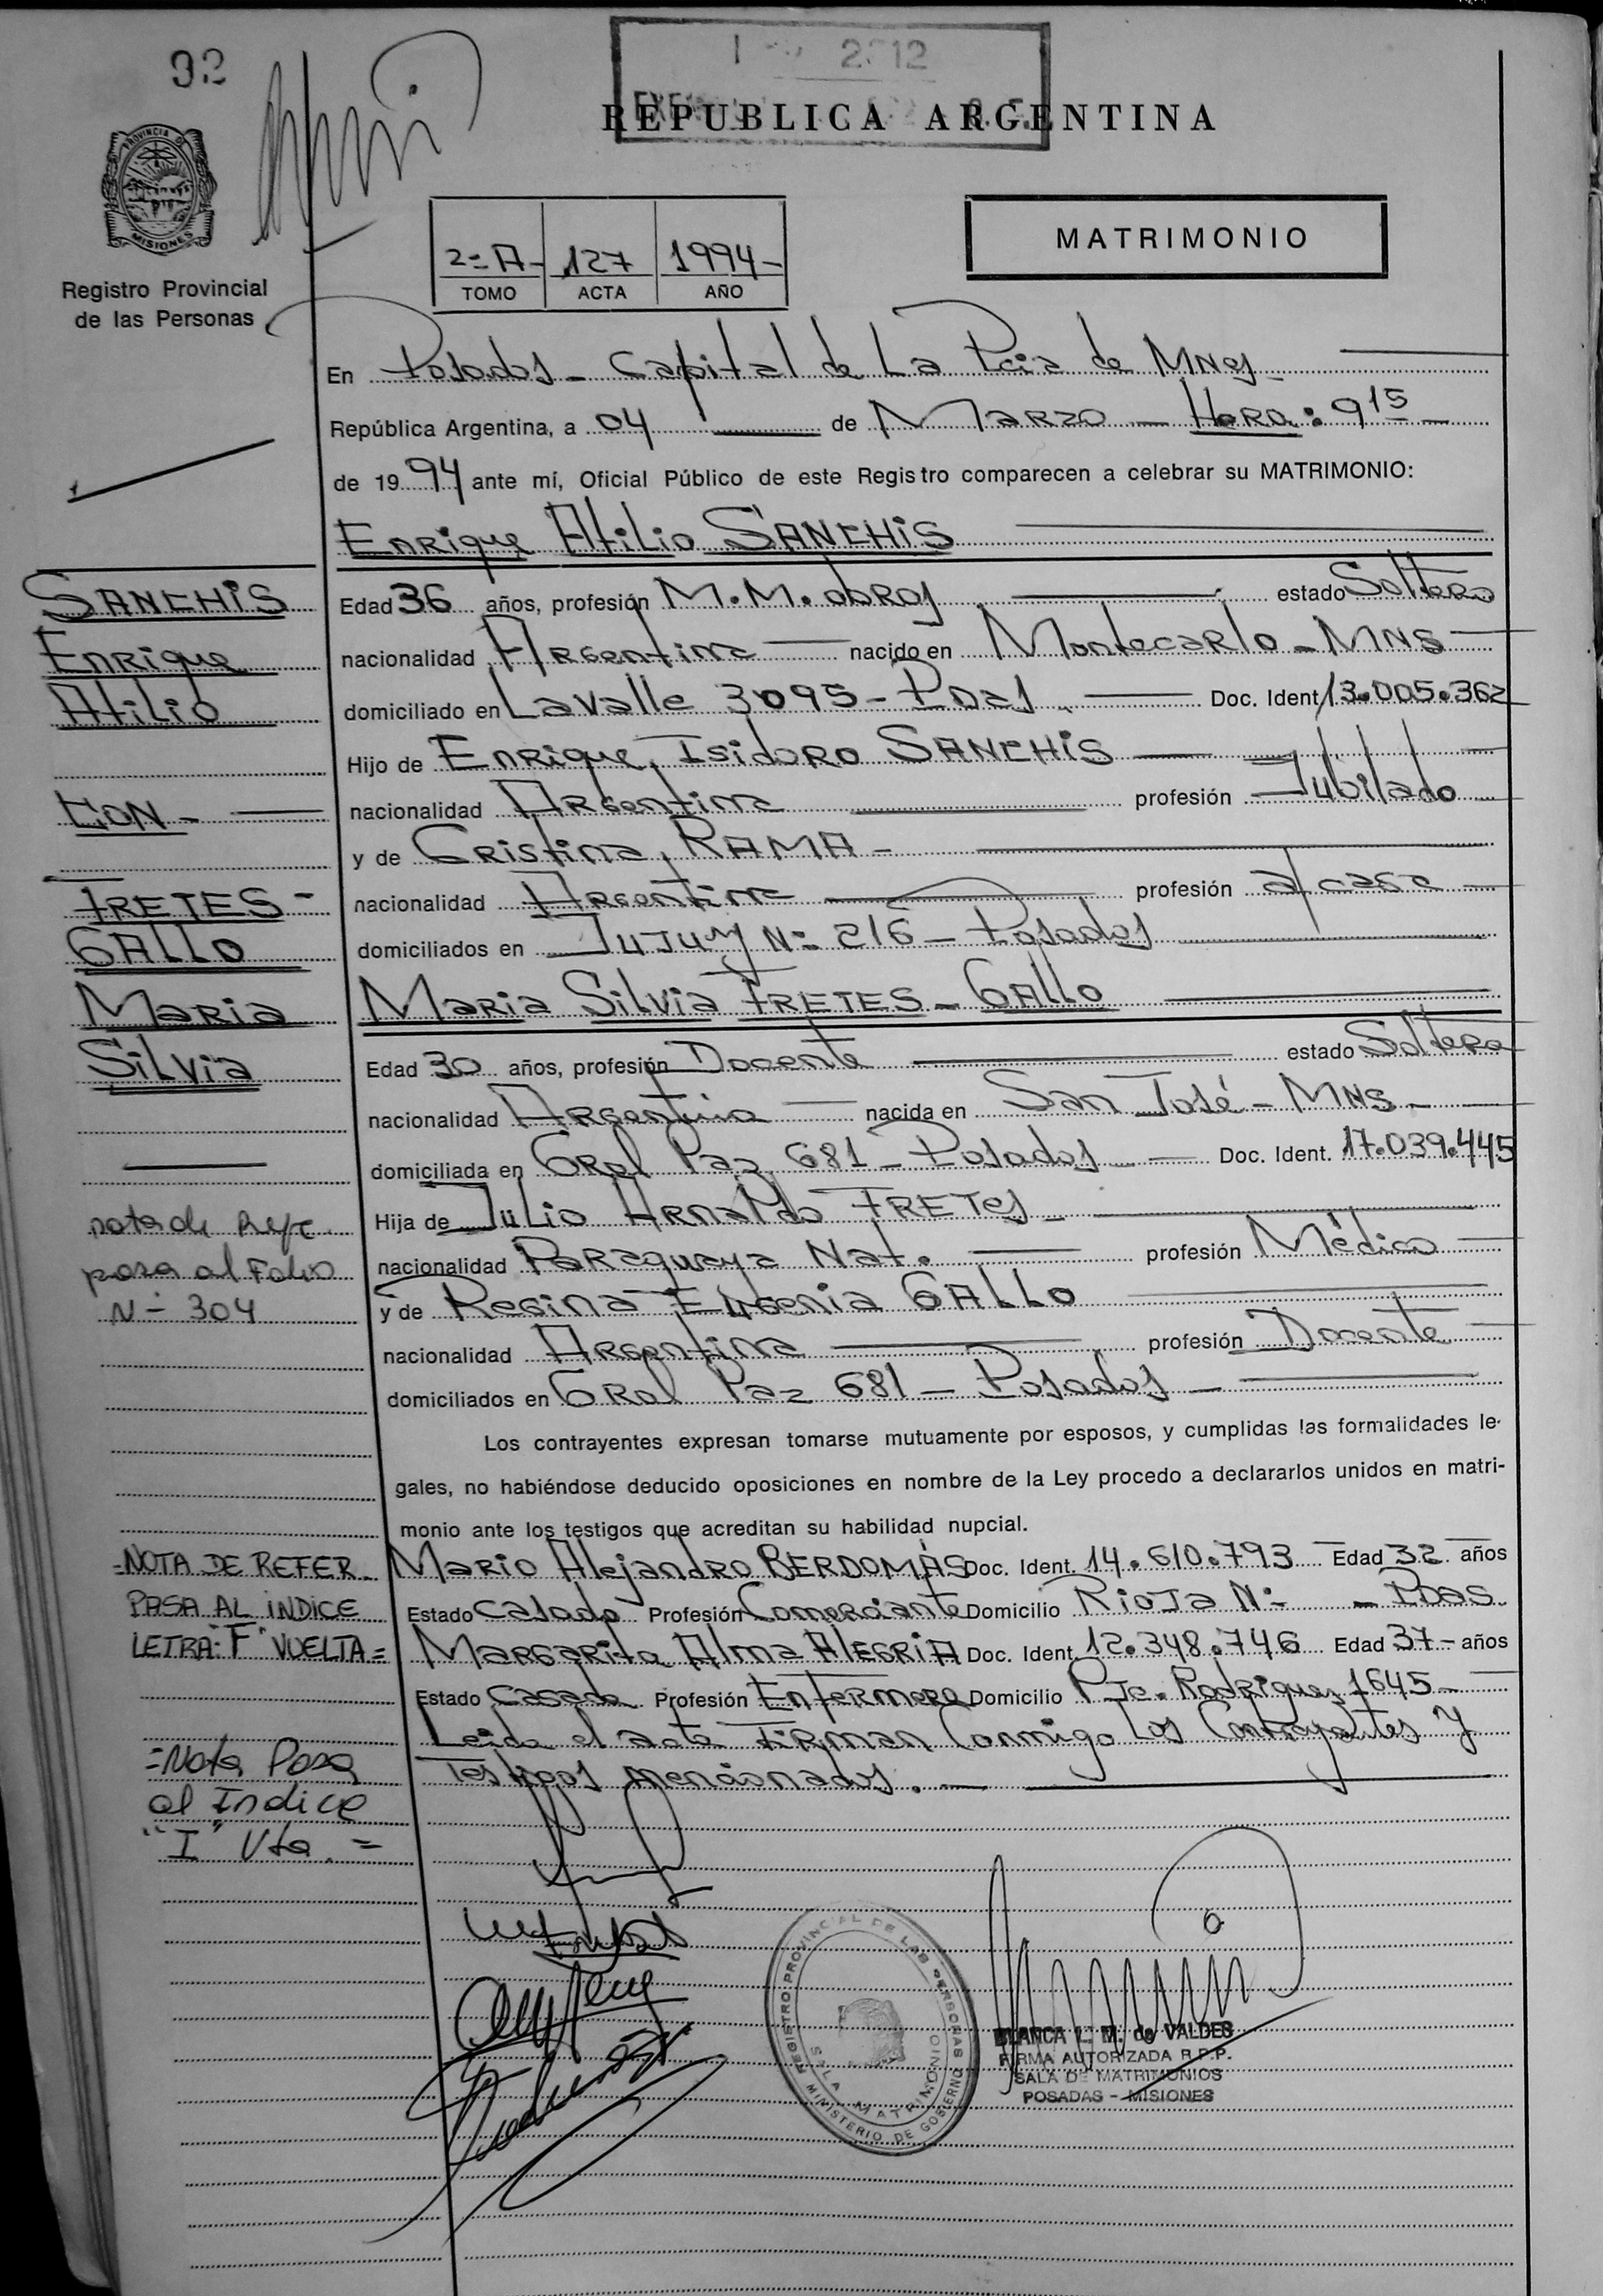 92
2012
REPUBLICA ARGENTINA
PROVINCIA DE
MISIONES
Registro Provincial
de las Personas
2=A- 127 1994-
TOMO ACTA AÑO
MATRIMONIO
En Posadas - Capital de La Pcia de Mnes
República Argentina, a 04 de Marzo - Hora: 9 15
de 1994 ante mí, Oficial Público de este Registro comparecen a celebrar su MATRIMONIO:
Enrique Atilio SANCHIS
Edad 36 años, profesión M.M. obras estado Soltero
nacionalidad Argentina nacido en Montecarlo - MNS
domiciliado en Lavalle 3095 - Pdas Doc. Ident 13.005.362
Hijo de Enrique Isidoro SANCHIS
nacionalidad Argentina profesión Jubilado
y de Cristina RAMA -
nacionalidad Argentina profesión a/casa
domiciliados en Jujuy N= 216 - Posadas
Maria Silvia FRETES - GALLO
Edad 30 años, profesión Docente estado Soltera
nacionalidad Argentina nacida en San José - MNS -
domiciliada en Gral Paz 681 - Posadas Doc. Ident. 17.039.445
Hija de Julio Arnaldo FRETES -
nacionalidad Paraguaya Nat. profesión Médico
y de Regina Eugenia GALLO
nacionalidad Argentina profesión Docente
domiciliados en Gral Paz 681 - Posadas -
Los contrayentes expresan tomarse mutuamente por esposos, y cumplidas las formalidades le-
gales, no habiéndose deducido oposiciones en nombre de la Ley procedo a declararlos unidos en matri-
monio ante los testigos que acreditan su habilidad nupcial.
Mario Alejandro BERDOMÁS Doc. Ident. 14.610.793 Edad 32 años
Estado Casado Profesión Comerciante Domicilio Rioja N= - Pdas.
Margarita Alma ALEGRIA Doc. Ident. 12.348.746 Edad 37- años
Estado Casada Profesión Enfermera Domicilio Pje. Rodriguez 1645 -
Leida el acta Firman Conmigo Los Contrayentes y
Testigos mencionados. -
SANCHIS
Enrique
Atilio
CON -
FRETES -
GALLO
Maria
Silvia
nota de Refe.
pasa al Folio
N= 304
=NOTA DE REFER.
PASA AL INDICE
LETRA: "F" VUELTA=
=Nota Pasa
al Indice
"I" Vta. =
REGISTRO PROVINCIAL DE LAS PERSONAS
MINISTERIO DE GOBIERNO
SALA MATRIMONIO
BLANCA L. M. de VALDES
FIRMA AUTORIZADA R.P.P.
SALA DE MATRIMONIOS
POSADAS - MISIONES